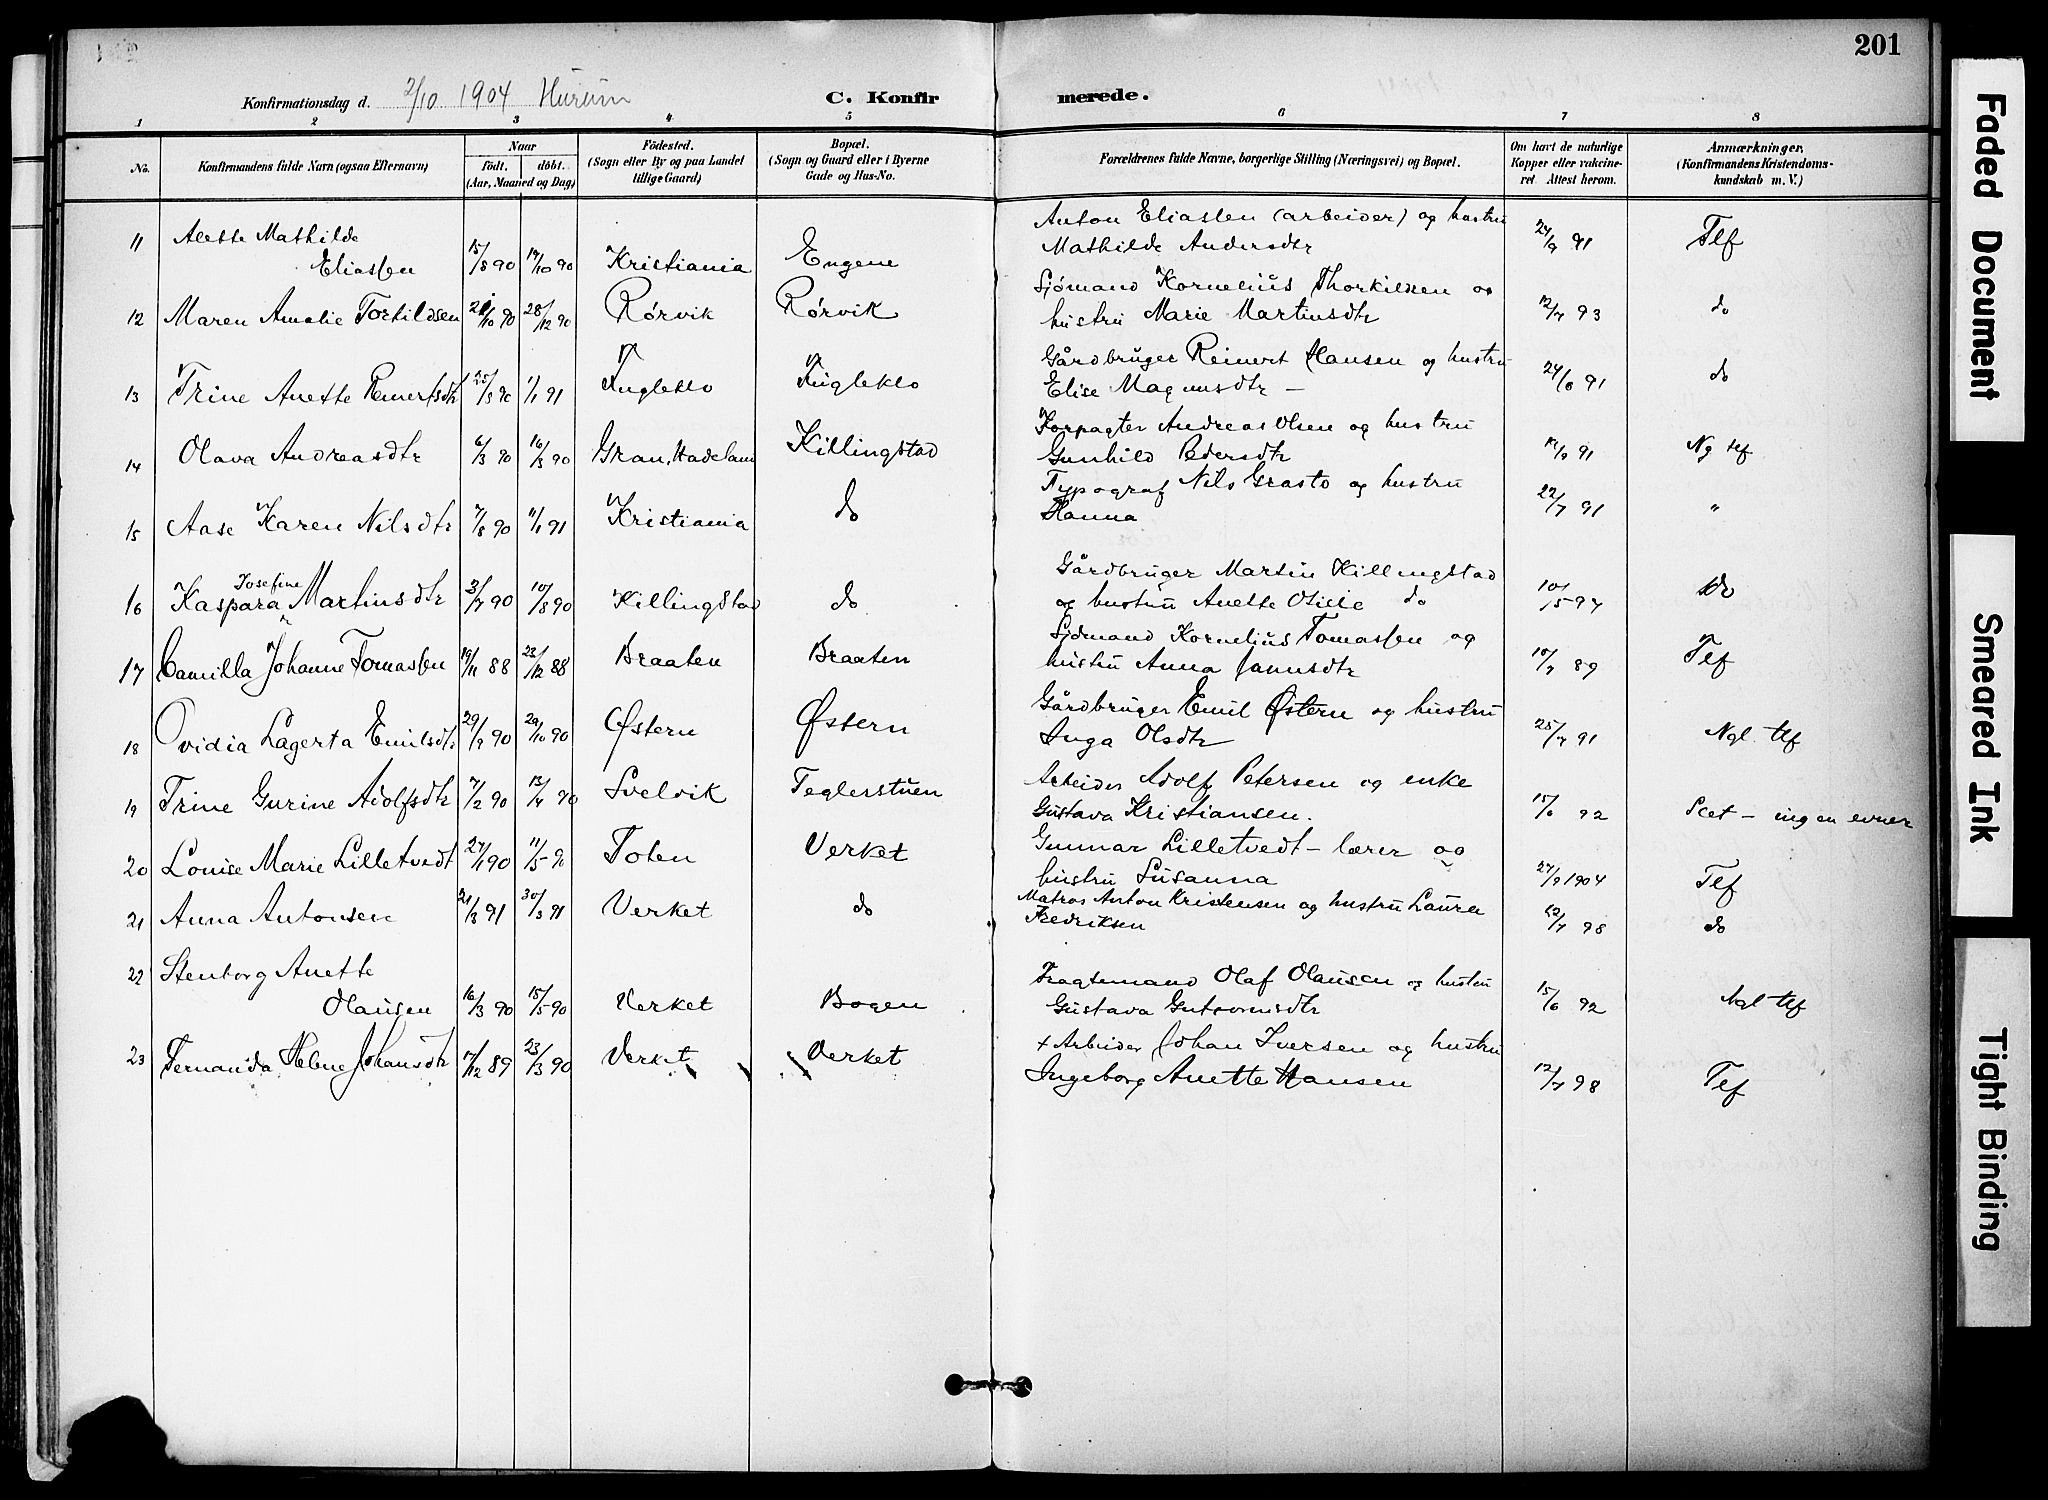 201
Konfirmationsdag d. 2/10 1904 Hurum
C. Konfir merede.
1 2 3 4 5 6 7 8
No. Konfirmandens fulde Navn (ogsaa Efternavn) Naar født. døbt. (Aar, Maaned og Dag) Fødested. (Sogn eller By og paa Landet tillige Gaard) Bopæl. (Sogn og Gaard eller i Byerne Gade og Hus-No. Forældrenes fulde Navne, borgerlige Stilling (Næringsvei) og Bopæl. Om havt de naturlige Kopper eller vakcineret. Attest herom. Anmærkninger. (Konfirmandens Kristendomskundskab m. V.)
11 Alette Mathilde Anton Eliassen (arbeider) og hustru
Eliassen 15/8 90 19/10 90 Kristiania Engene Mathilde Andersdtr 24/9 91 Tlf
Sjömand Kornelius Thorkildsen og
12 Maren Amalie Torkildsen 21/10 90 28/12 90 Rørvik Rørvik hustru Marie Martinsdtr 12/7 93 do
Gårdbruger Reinert Hansen og hustru
13 Trine Anette Reinertsdtr 1/1 91 Fugleklo Elise Magnusdtr – 24/8 91 do
Forpagter Andreas Olsen og hustru
14 Olava Andreasdtr 6/3 90 16/3 90 Gran, Hadeland Killingstad Gunhild Pedersdtr 91 Ng tlf
Typograf Nils Grasto og hustru
15 Aase Karen Nilsdtr 7/8 90 11/1 91 Kristiania do Hanna 22/7 91 "
Josefine Gårdbruger Martin Killingstad
16 Kaspara Martinsdtr 3/7 90 10/8 90 Killingstad do og hustru Anette Otilie do 10/5 97 do
Sjömand Kornelius Tomassen og
17 Camilla Johanne Tomassen 19/11 88 23/12 88 Braaten Braaten hustru Anna Jannsdtr 10/7 89 Tlf
Gårdbruger Emil Østern og hustru
18 Ovidia Lagerta Emilsdtr 29/9 90 29/10 90 Østern Østern Inga Olsdtr 25/7 91 Ngl. tlf
Arbeider Adolf Petersen og enke
19 Trine Gurine Adolfsdtr 7/2 90 13/4 90 Svelvik Teglerstuen Gustava Kristiansen. 15/6 92 Slet – ingen evner
Gunnar Lilletvedt – lærer og
20 Louise Marie Lilletvedt 27/1 90 11/5 90 Toten Verket hustru Susanna 27/9 1904 Tlf
Matros Anton Kristensen og hustru Laura
21 Anna Antonsen 21/3 91 30/3 91 Verket do Fredriksen 12/7 98 do
22 Stenborg Anette Fragtemand Olaf Olausen og hustru
Olausen 16/3 90 15/5 90 Verket Bogen Gustava Gutormsdtr 15/6 92 Ngl tlf
+ Arbeider Johan Iversen og hustru
23 Fernanda Helene Johansdtr 7/12 89 23/3 90 Verket Verket Ingeborg Anette Hansen 12/7 98 Tlf
Faded Document
Smeared Ink
Tight Binding